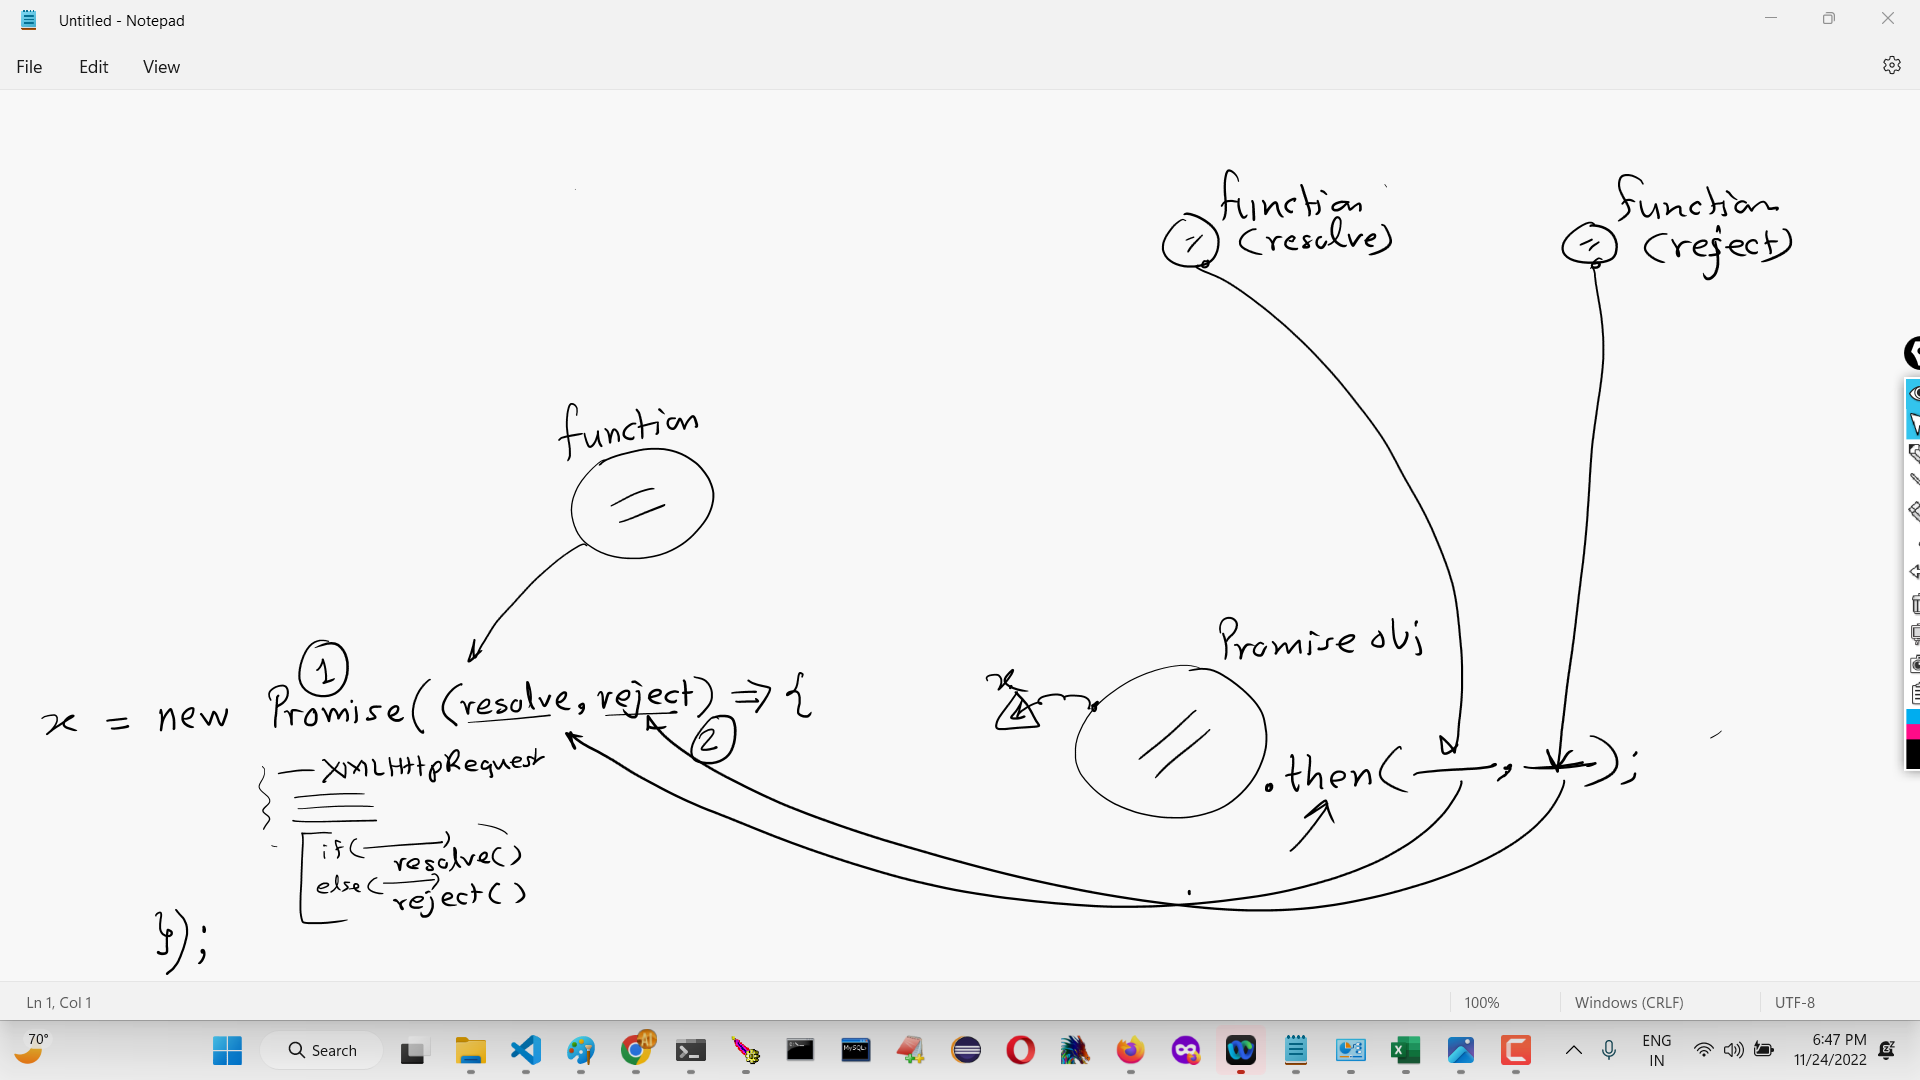 Untitled - Notepad
File Edit View
function
(resolve)
function
(reject)
function
Promise obj
1
x = new Promise((resolve, reject) => {
2
x
XMLHttpRequest
.then( , );
if( ) resolve()
else( ) reject()
});
Ln 1, Col 1
100%
Windows (CRLF)
UTF-8
70°
Search
ENG
IN
6:47 PM
11/24/2022